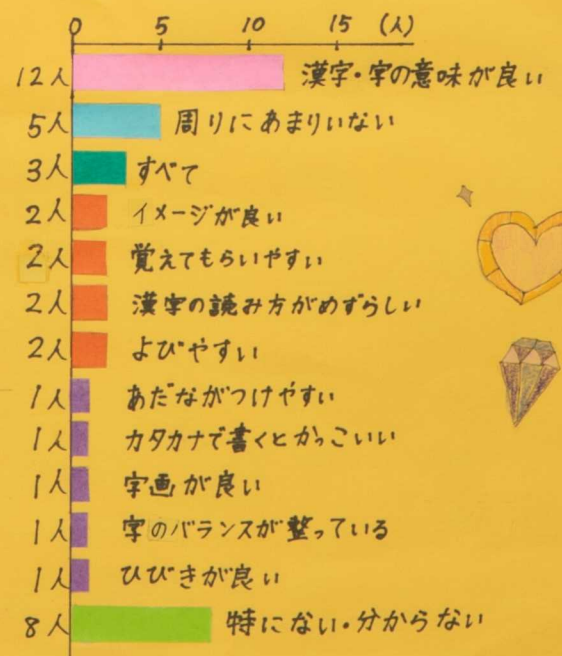 0 5 10 15 (人)
12人 漢字・字の意味が良い
5人 周りにあまりいない
3人 すべて
2人 イメージが良い
2人 覚えてもらいやすい
2人 漢字の読み方がめずらしい
2人 よびやすい
1人 あだながつけやすい
1人 カタカナで書くとかっこいい
1人 字画が良い
1人 字のバランスが整っている
1人 ひびきが良い
8人 特にない・分からない